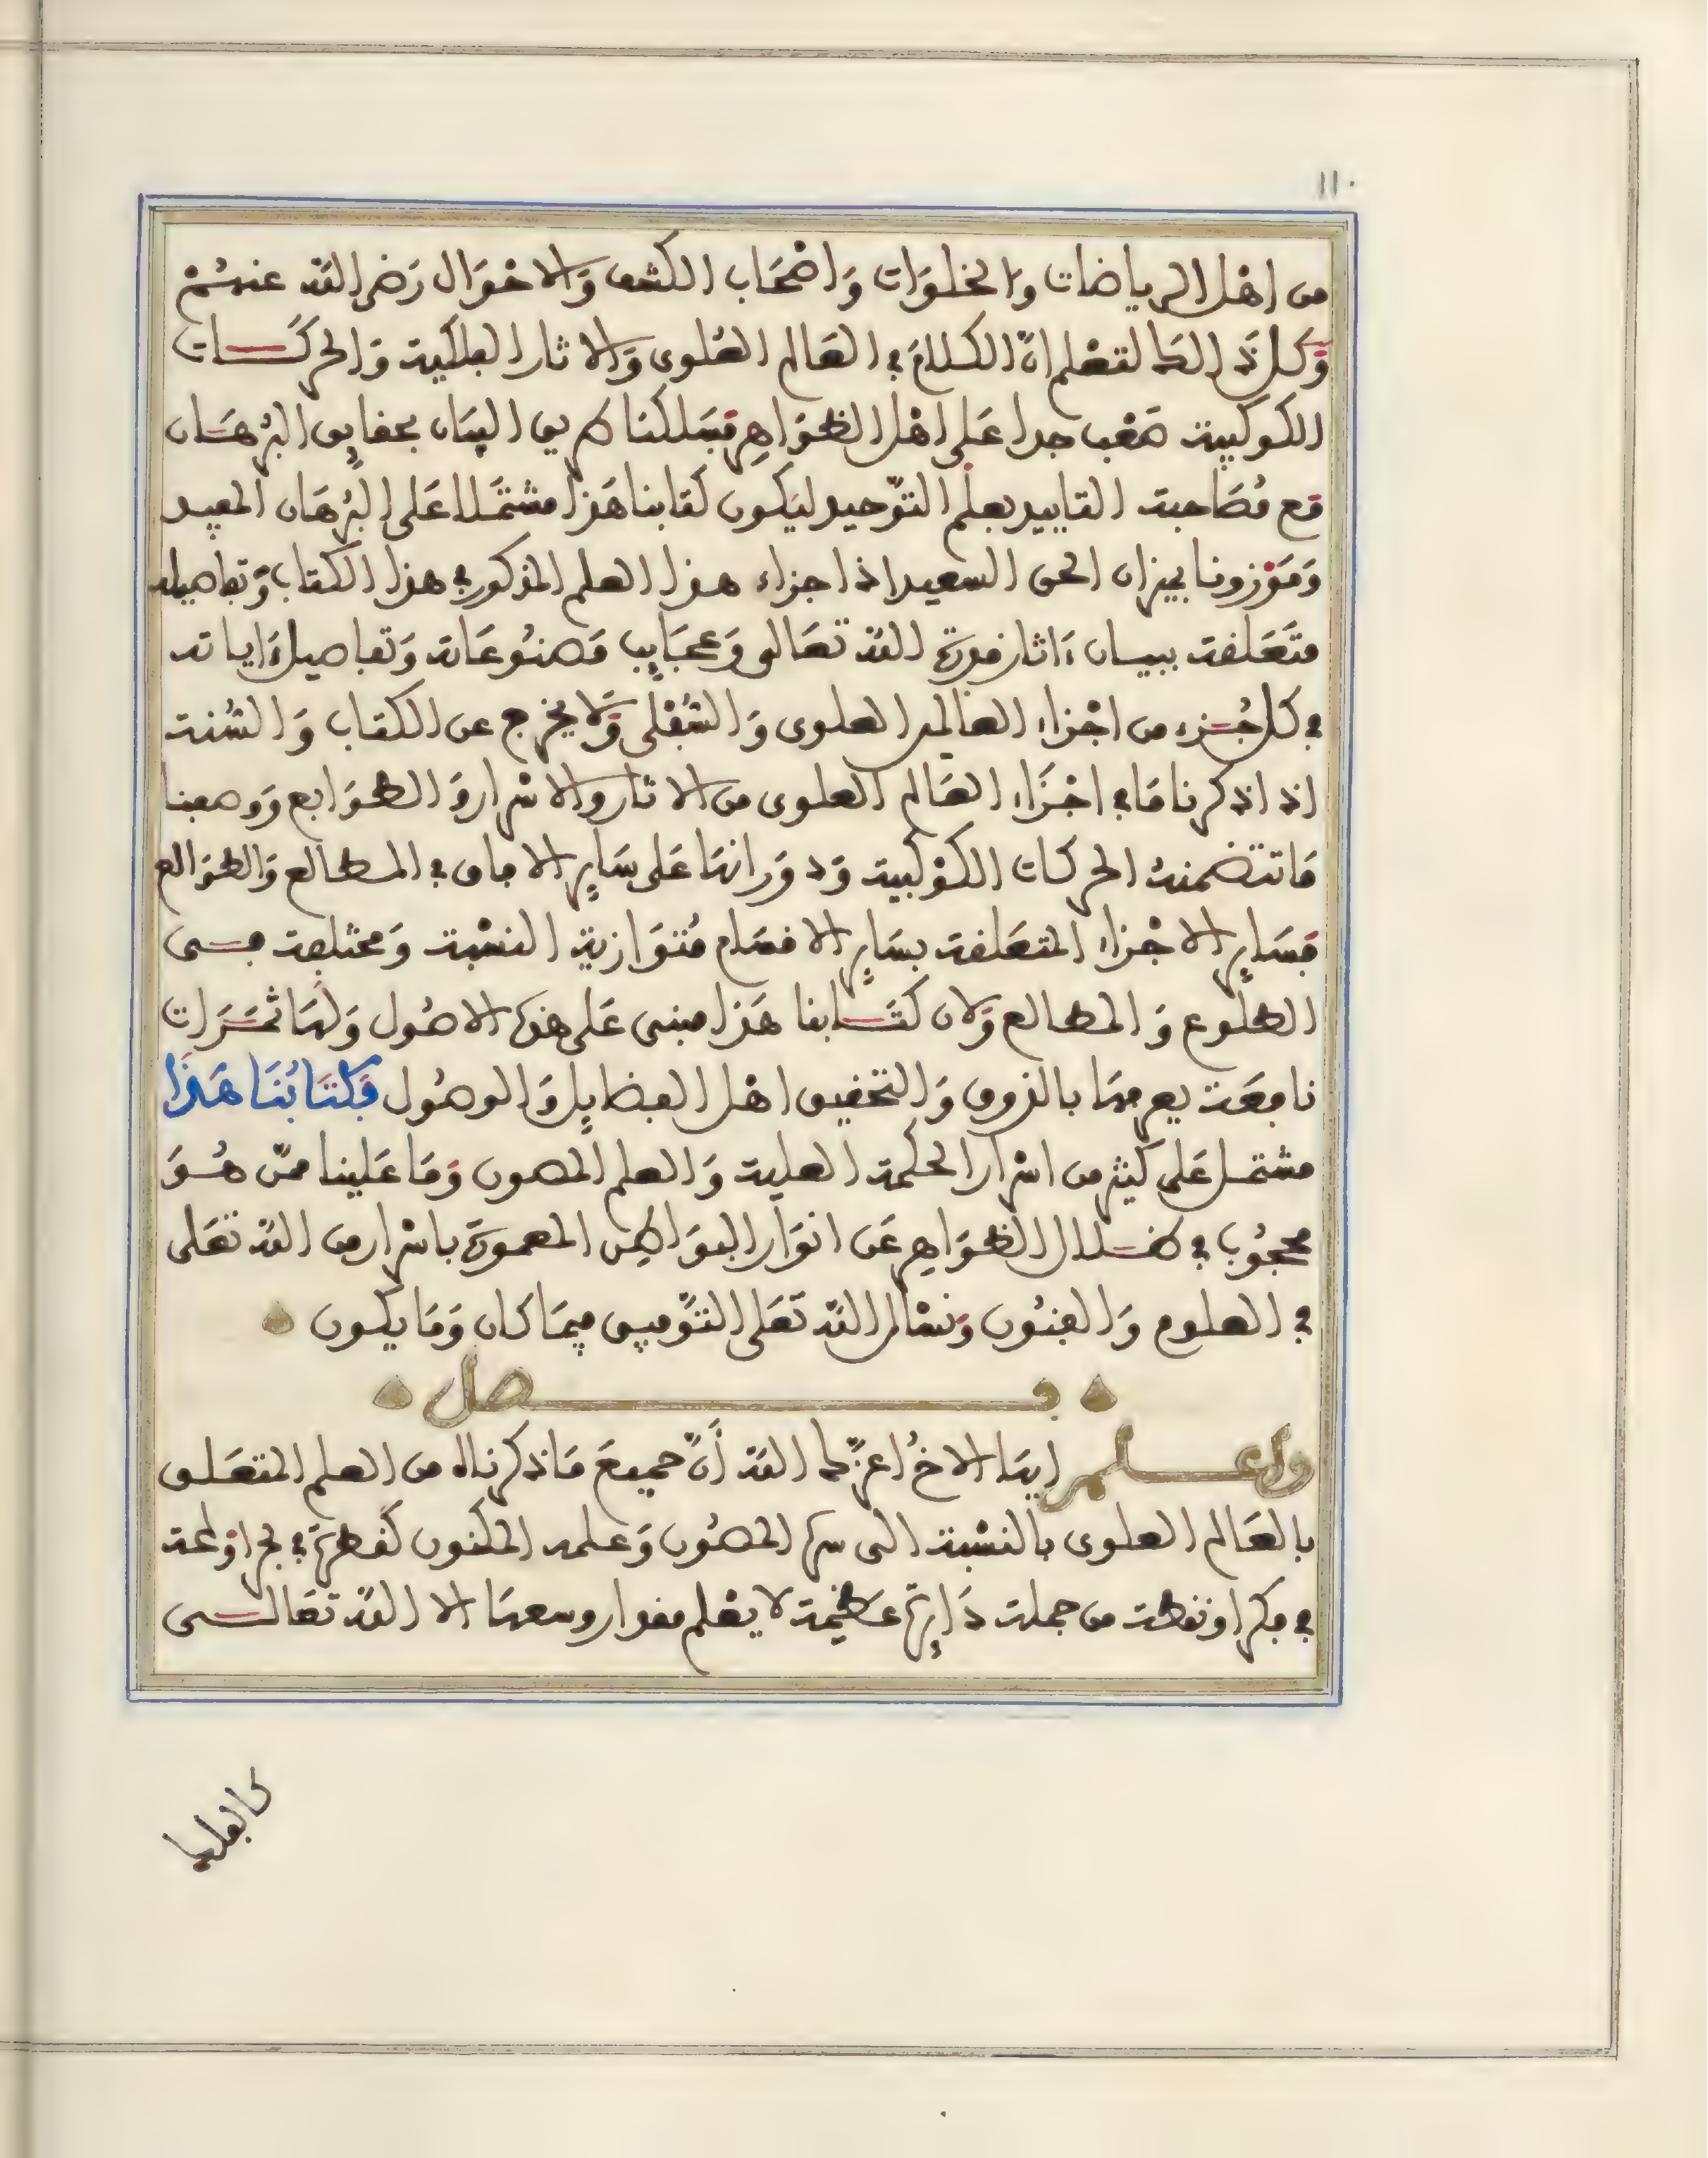 ١١٠
من اهْل الرياضات والخلوَات وَاصْحَاب الكشف وَالاحْوَال رَضى اللّه عنهُمْ
وَكل ذَلك لتعْلم انّ الكلامَ في العَالم العُلوى وَالاثار الفلكية وَالحركَات
الكوكبية صَعْب جدا عَلى اهْل الظوَاهِر فسَلكنا طريق البيَان بحقايِق البُرهَان
مَع مُصَاحبة التاييد بعلْم التوّحيد ليَكون كتابنا هَذا مشتمَلا عَلى البُرهَان المفيد
وَمَوْزونا بميزان الحق السعيد اذ اجزاء هذا العلم المذكور في هذا الكتاب وَتفاصيله
متَعَلقة ببيان ءَاثار قدرة اللّه تعَالى وَعجَايِب مَصنُوعَاته وَتفاصيل ءَاياته
في كل جُزء من اجْزاء العالم العلوى وَالسُفْلى وَلَا يخرج عن الكتاب وَالسُنة
اذ اذكرنا مَا في اجْزَاء العَالم العلوى من الاثار والاسْرار وَالطوَابع وَوصفنا
مَا تتضمنهُ الحركات الكوْكبية وَدوَرانهَا عَلى سَايِر الافاق في المطالع وَالطوَالع
فسَايِر الاجْزاء المتعَلقة بسَايِر الاقسَام مُتوَازية النسْبة وَمختلفة في
الطلُوع وَالمطالع وَلان كتَابنا هَذا مبنى عَلى هذه الاصُول وَلهَا ثمَرَات
نافعَة يعرفهَا بالذوق وَالتحقيق اهْل الفضايِل وَالوصُول فَكتَابُنَا هَذَا
مشتمل عَلى كَثير من اسْرار الحكمة العلية وَالعلم المصون وَمَا عَلينا ممّن هُوَ
محجُوب في ضلال الظوَاهِر عَن انوَار البوَاطِن المعمورَة باسْرار من اللّه تعَلى
في العلوم وَالفنُون وَنسْأل اللّه تعَلى التوّفيق فيمَا كَان وَمَا يكون
فصل
واعلم ايهَا الاخُ اعزّك اللّه أَنّ جميعَ مَا ذكرناه من العلم المتعَلق
بالعَالم العلوى بالنسْبة الى سره المصُون وَعلمه المكنون كقطرَة في بحر اوْ لمحة
في فكر اوْ نقطة من جملة دَايِرة عَظيمة لا يعْلم مقدار وسعهَا الا اللّه تعَالى
كالفلما